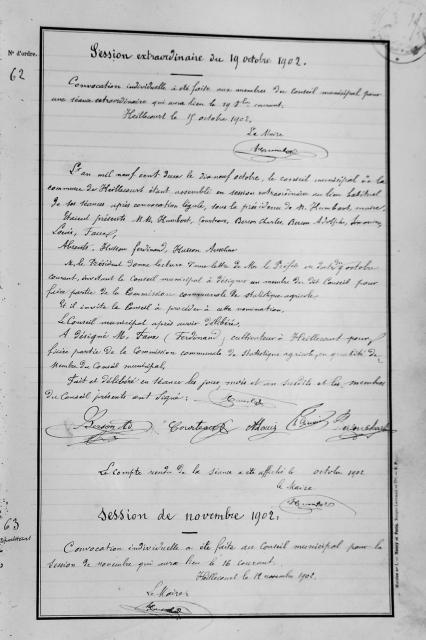 N° d'ordre.
62
Session extraordinaire du 19 octobre 1902.
Convocation individuelle a été faite aux membres du Conseil municipal pour
une séance extraordinaire qui aura lieu le 19 8bre courant.
Heillecourt le 15 octobre 1902.
Le Maire
Humbert
L'an mil neuf cent deux le dix neuf octobre, le conseil municipal de la
commune de Heillecourt étant assemblé en session extraordinaire au lieu habituel
de ses séances après convocation légale, sous la présidence de M. Humbert, maire.
Étaient présents M.M. Humbert, Courteaux, Berson Charles, Berson Adolphe,
Louis, Favre,
Absents, Husson Ferdinand, Husson
M. le Président donne lecture d'une lettre de Mr le Préfet en date du octobre
courant, invitant le Conseil municipal à désigner un membre du dit Conseil pour
faire partie de la Commission communale de statistique agricole.
Et il invite le Conseil à procéder à cette nomination.
Le Conseil municipal après avoir délibéré,
A désigné M. Favre (Ferdinand), cultivateur à Heillecourt pour
faire partie de la Commission communale de statistique agricole, en qualité de
membre du Conseil municipal,
Fait et délibéré en séance les jour, mois et an susdits et les membres
du Conseil présents ont signé :
Humbert
Berson Ad Courteaux
Le compte rendu de la séance a été affiché le octobre 1902
Le Maire
Humbert
63
Session de novembre 1902.
Convocation individuelle a été faite au Conseil municipal pour la
session de novembre qui aura lieu le 16 courant.
Heillecourt, le 12 novembre 1902.
Le Maire
Humbert